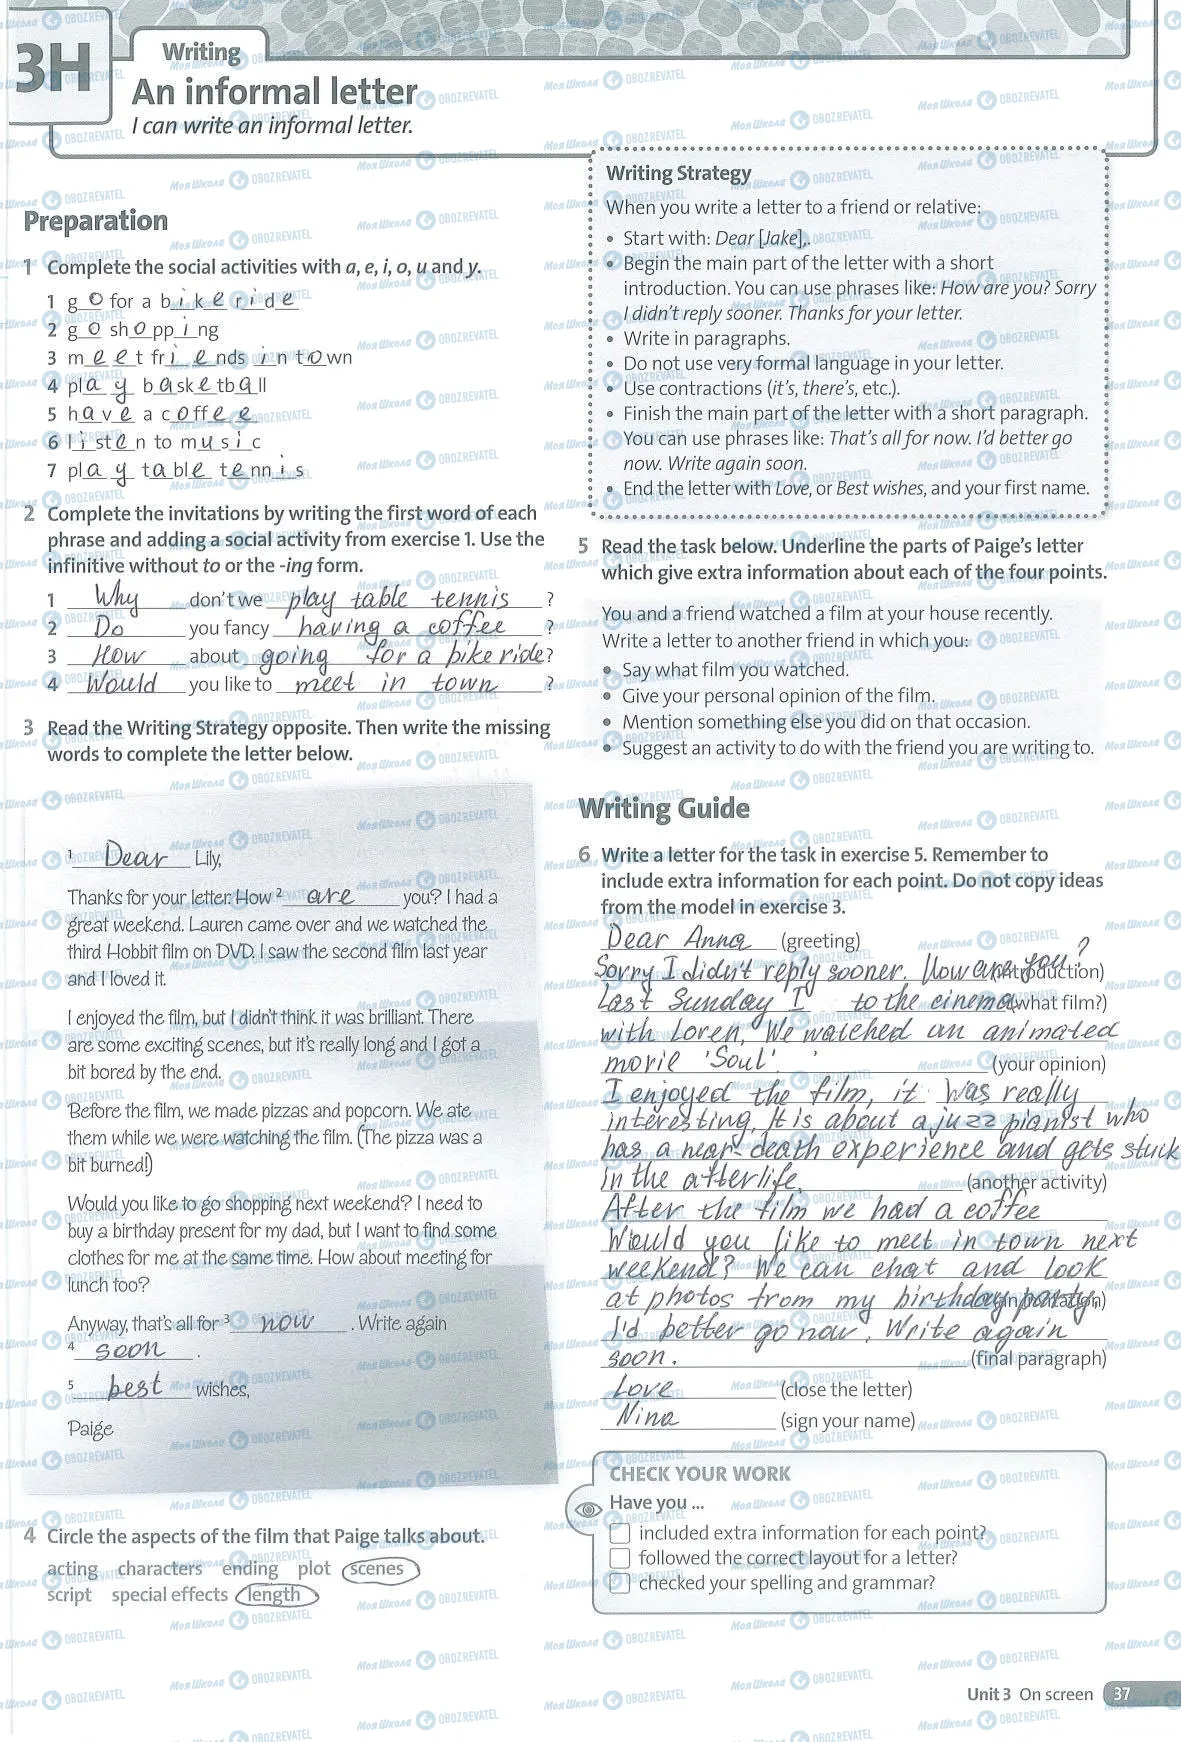 3H
Writing
An informal letter
I can write an informal letter.
Preparation
1 Complete the social activities with a, e, i, o, u and y.
1 g o for a b i k e r i d e
2 g o sh o pp i ng
3 m e e t fr i e nds i n t o wn
4 pl a y b a sk e tb a ll
5 h a v e a c o ff e e
6 l i st e n to m u s i c
7 pl a y t a bl e t e nn i s
2 Complete the invitations by writing the first word of each
phrase and adding a social activity from exercise 1. Use the
infinitive without to or the -ing form.
1 Why don't we play table tennis ?
2 Do you fancy having a coffee ?
3 How about going for a bike ride ?
4 Would you like to meet in town ?
3 Read the Writing Strategy opposite. Then write the missing
words to complete the letter below.
1 Dear Lily,
Thanks for your letter. How 2 are you? I had a
great weekend. Lauren came over and we watched the
third Hobbit film on DVD. I saw the second film last year
and I loved it.
I enjoyed the film, but I didn't think it was brilliant. There
are some exciting scenes, but it's really long and I got a
bit bored by the end.
Before the film, we made pizzas and popcorn. We ate
them while we were watching the film. (The pizza was a
bit burned!)
Would you like to go shopping next weekend? I need to
buy a birthday present for my dad, but I want to find some
clothes for me at the same time. How about meeting for
lunch too?
Anyway, that's all for 3 now . Write again
4 soon .
5 best wishes,
Paige
4 Circle the aspects of the film that Paige talks about.
acting characters ending plot scenes
script special effects length
Writing Strategy
When you write a letter to a friend or relative:
• Start with: Dear [Jake],.
• Begin the main part of the letter with a short
introduction. You can use phrases like: How are you? Sorry
I didn't reply sooner. Thanks for your letter.
• Write in paragraphs.
• Do not use very formal language in your letter.
• Use contractions (it's, there's, etc.).
• Finish the main part of the letter with a short paragraph.
You can use phrases like: That's all for now. I'd better go
now. Write again soon.
• End the letter with Love, or Best wishes, and your first name.
5 Read the task below. Underline the parts of Paige's letter
which give extra information about each of the four points.
You and a friend watched a film at your house recently.
Write a letter to another friend in which you:
• Say what film you watched.
• Give your personal opinion of the film.
• Mention something else you did on that occasion.
• Suggest an activity to do with the friend you are writing to.
Writing Guide
6 Write a letter for the task in exercise 5. Remember to
include extra information for each point. Do not copy ideas
from the model in exercise 3.
Dear Anna (greeting)
Sorry I didn't reply sooner. How are you? (introduction)
Last Sunday I to the cinema (what film?)
with Loren. We watched an animated
movie 'Soul'. (your opinion)
I enjoyed the film, it was really
interesting. It is about a juzz pianist who
has a near-death experience and gets stuck
in the afterlife. (another activity)
After the film we had a coffee
Would you like to meet in town next
weekend? We can chat and look
at photos from my birthday party. (an invitation)
I'd better go now. Write again
soon. (final paragraph)
Love (close the letter)
Nina (sign your name)
CHECK YOUR WORK
Have you ...
included extra information for each point?
followed the correct layout for a letter?
checked your spelling and grammar?
Unit 3 On screen 37
Моя Школа OBOZREVATEL